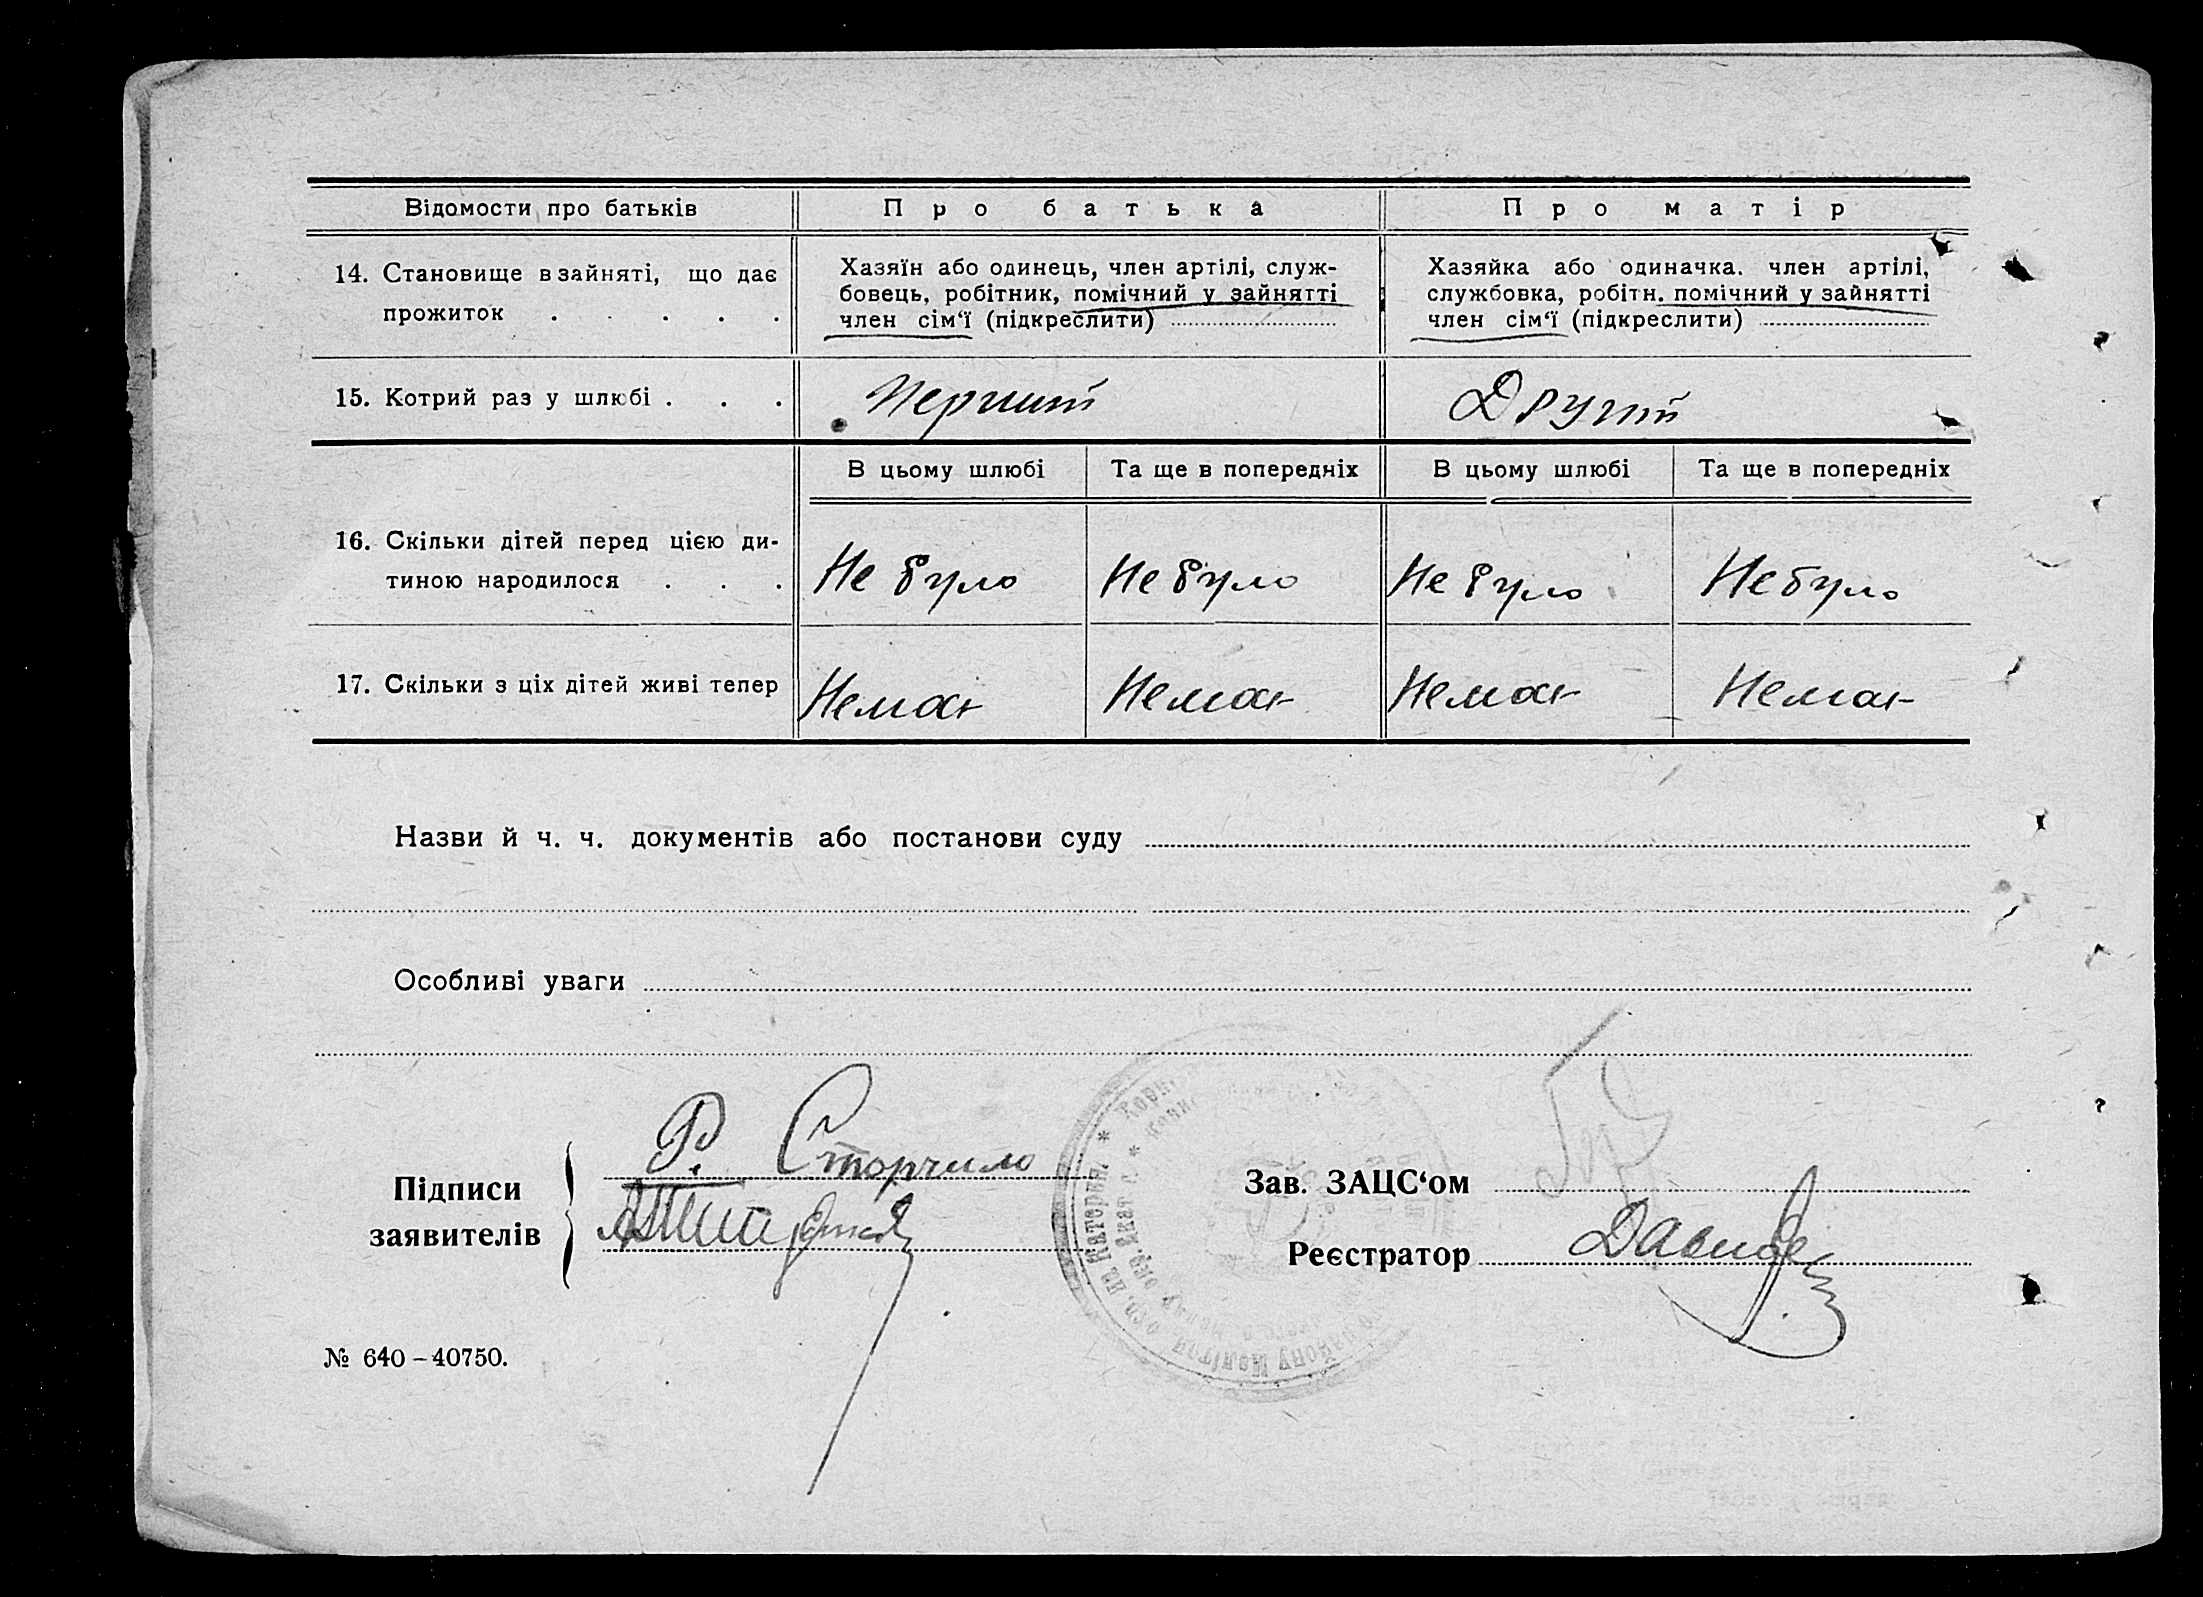 Відомости про батьків Про батька Про матір
14. Становище в зайняті, що дає
прожиток . . . . .
Хазяїн або одинець, член артілі, служ-
бовець, робітник, помічний у зайнятті
член сім'ї (підкреслити)
Хазяйка або одиначка. член артілі,
службовка, робітн. помічний у зайнятті
член сім'ї (підкреслити)
15. Котрий раз у шлюбі . . . Перший Другий
В цьому шлюбі Та ще в попередніх В цьому шлюбі Та ще в попередніх
16. Скільки дітей перед цією ди-
тиною народилося . . .
Не було Не було Не було Не було
17. Скільки з ціх дітей живі тепер Немає Немає Немає Немає
Назви й ч. ч. документів або постанови суду
Особливі уваги
Підписи
заявителів
Р. Сторчило
Зав. ЗАЦС'ом
Реєстратор
№ 640–40750.